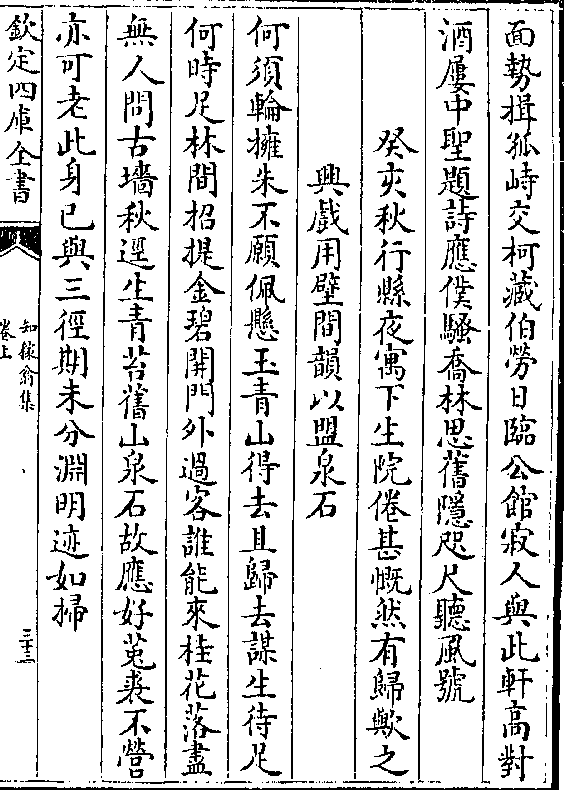 面勢揖孤峙交柯藏伯勞日臨公館寂人與此軒高對
酒屢中聖題詩應僕騷喬林思舊隱咫尺聽風號
癸亥秋行縣夜寓下生院倦甚慨然有歸歟之
興戲用壁間韻以盟泉石
何須輪擁朱不願佩懸玉青山得去且歸去謀生待足
何時足林間招提金碧開門外過客誰能來桂花落盡
無人問古墻秋逕生青苔舊山泉石故應好菟裘不營
亦可老此身已與三徑期未分淵明迹如掃
欽定四庫全書
知稼翁集
卷上
三十三